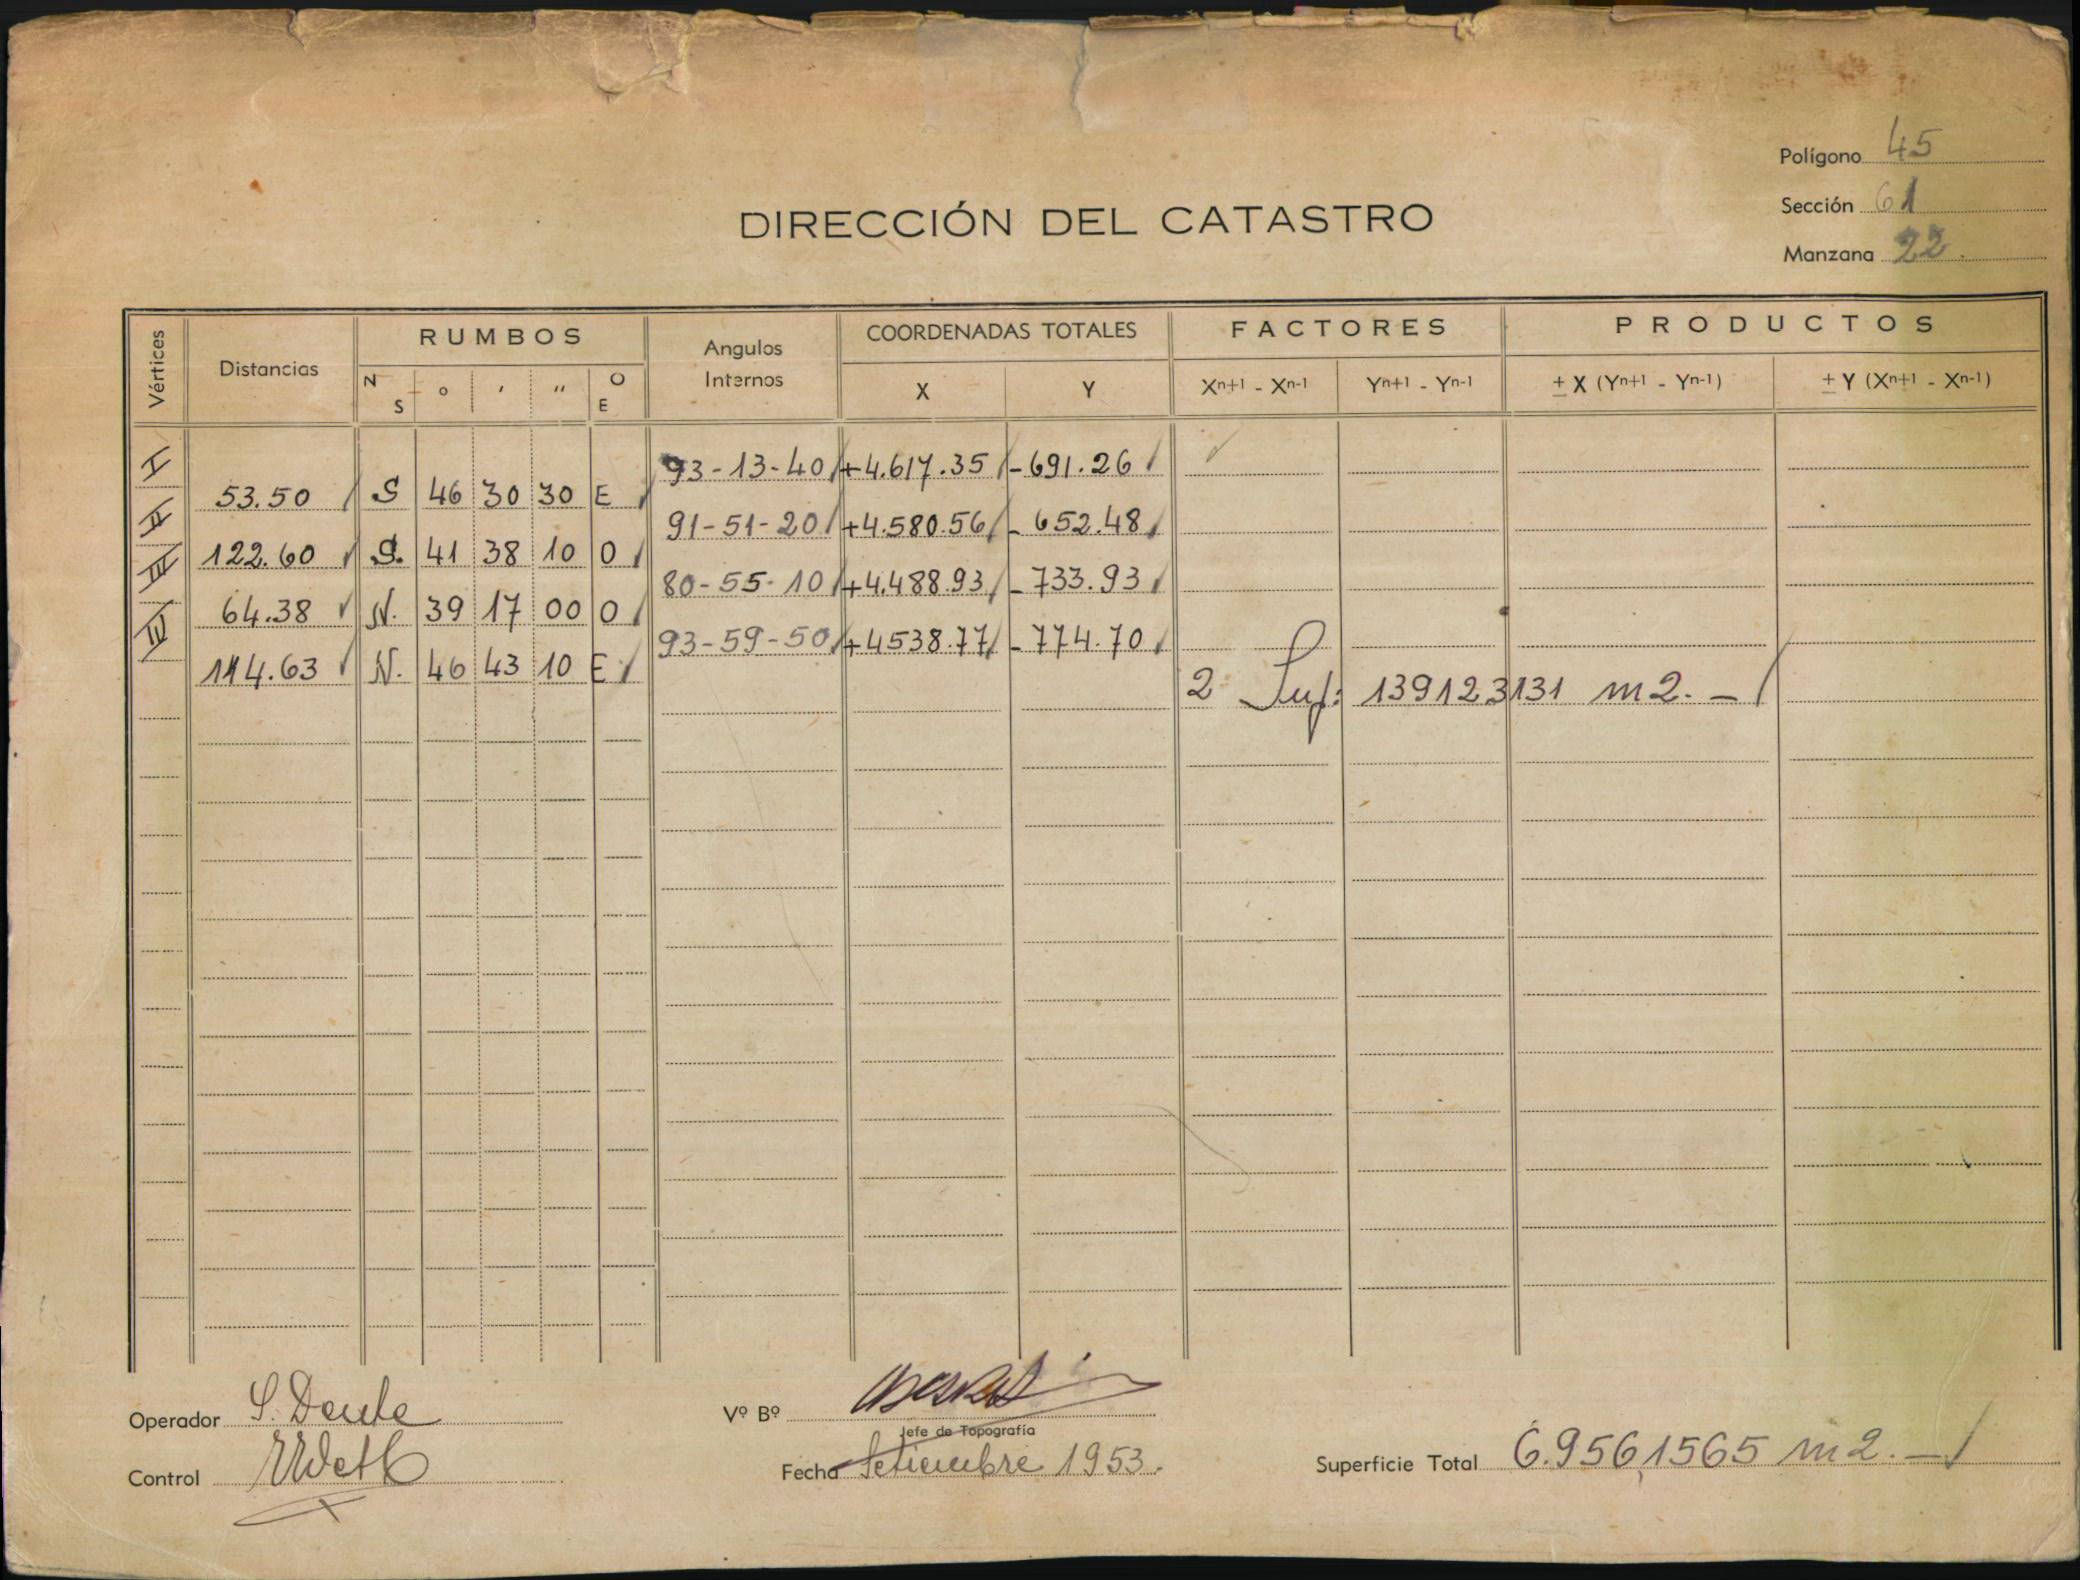 Polígono 45
Sección 61
Manzana 22
DIRECCIÓN DEL CATASTRO
Vértices Distancias RUMBOS Angulos Internos COORDENADAS TOTALES FACTORES PRODUCTOS
N S ° ' " O E X Y Xn+1 - Xn-1 Yn+1 - Yn-1 ± X (Yn+1 - Yn-1) ± Y (Xn+1 - Xn-1)
I 93-13-40 +4.617.35 -691.26
53.50 S 46 30 30 E
II 91-51-20 +4.580.56 -652.48
122.60 S. 41 38 10 O
III 80-55-10 +4.488.93 -733.93
64.38 N. 39 17 00 O
IV 93-59-50 +4538.77 -774.70
114.63 N. 46 43 10 E
2 Sup: 139123131 m2. -
Operador S. Dente
Vº Bº
Jefe de Topografía
Control
Fecha Setiembre 1953.
Superficie Total 6.956,1565 m2. -